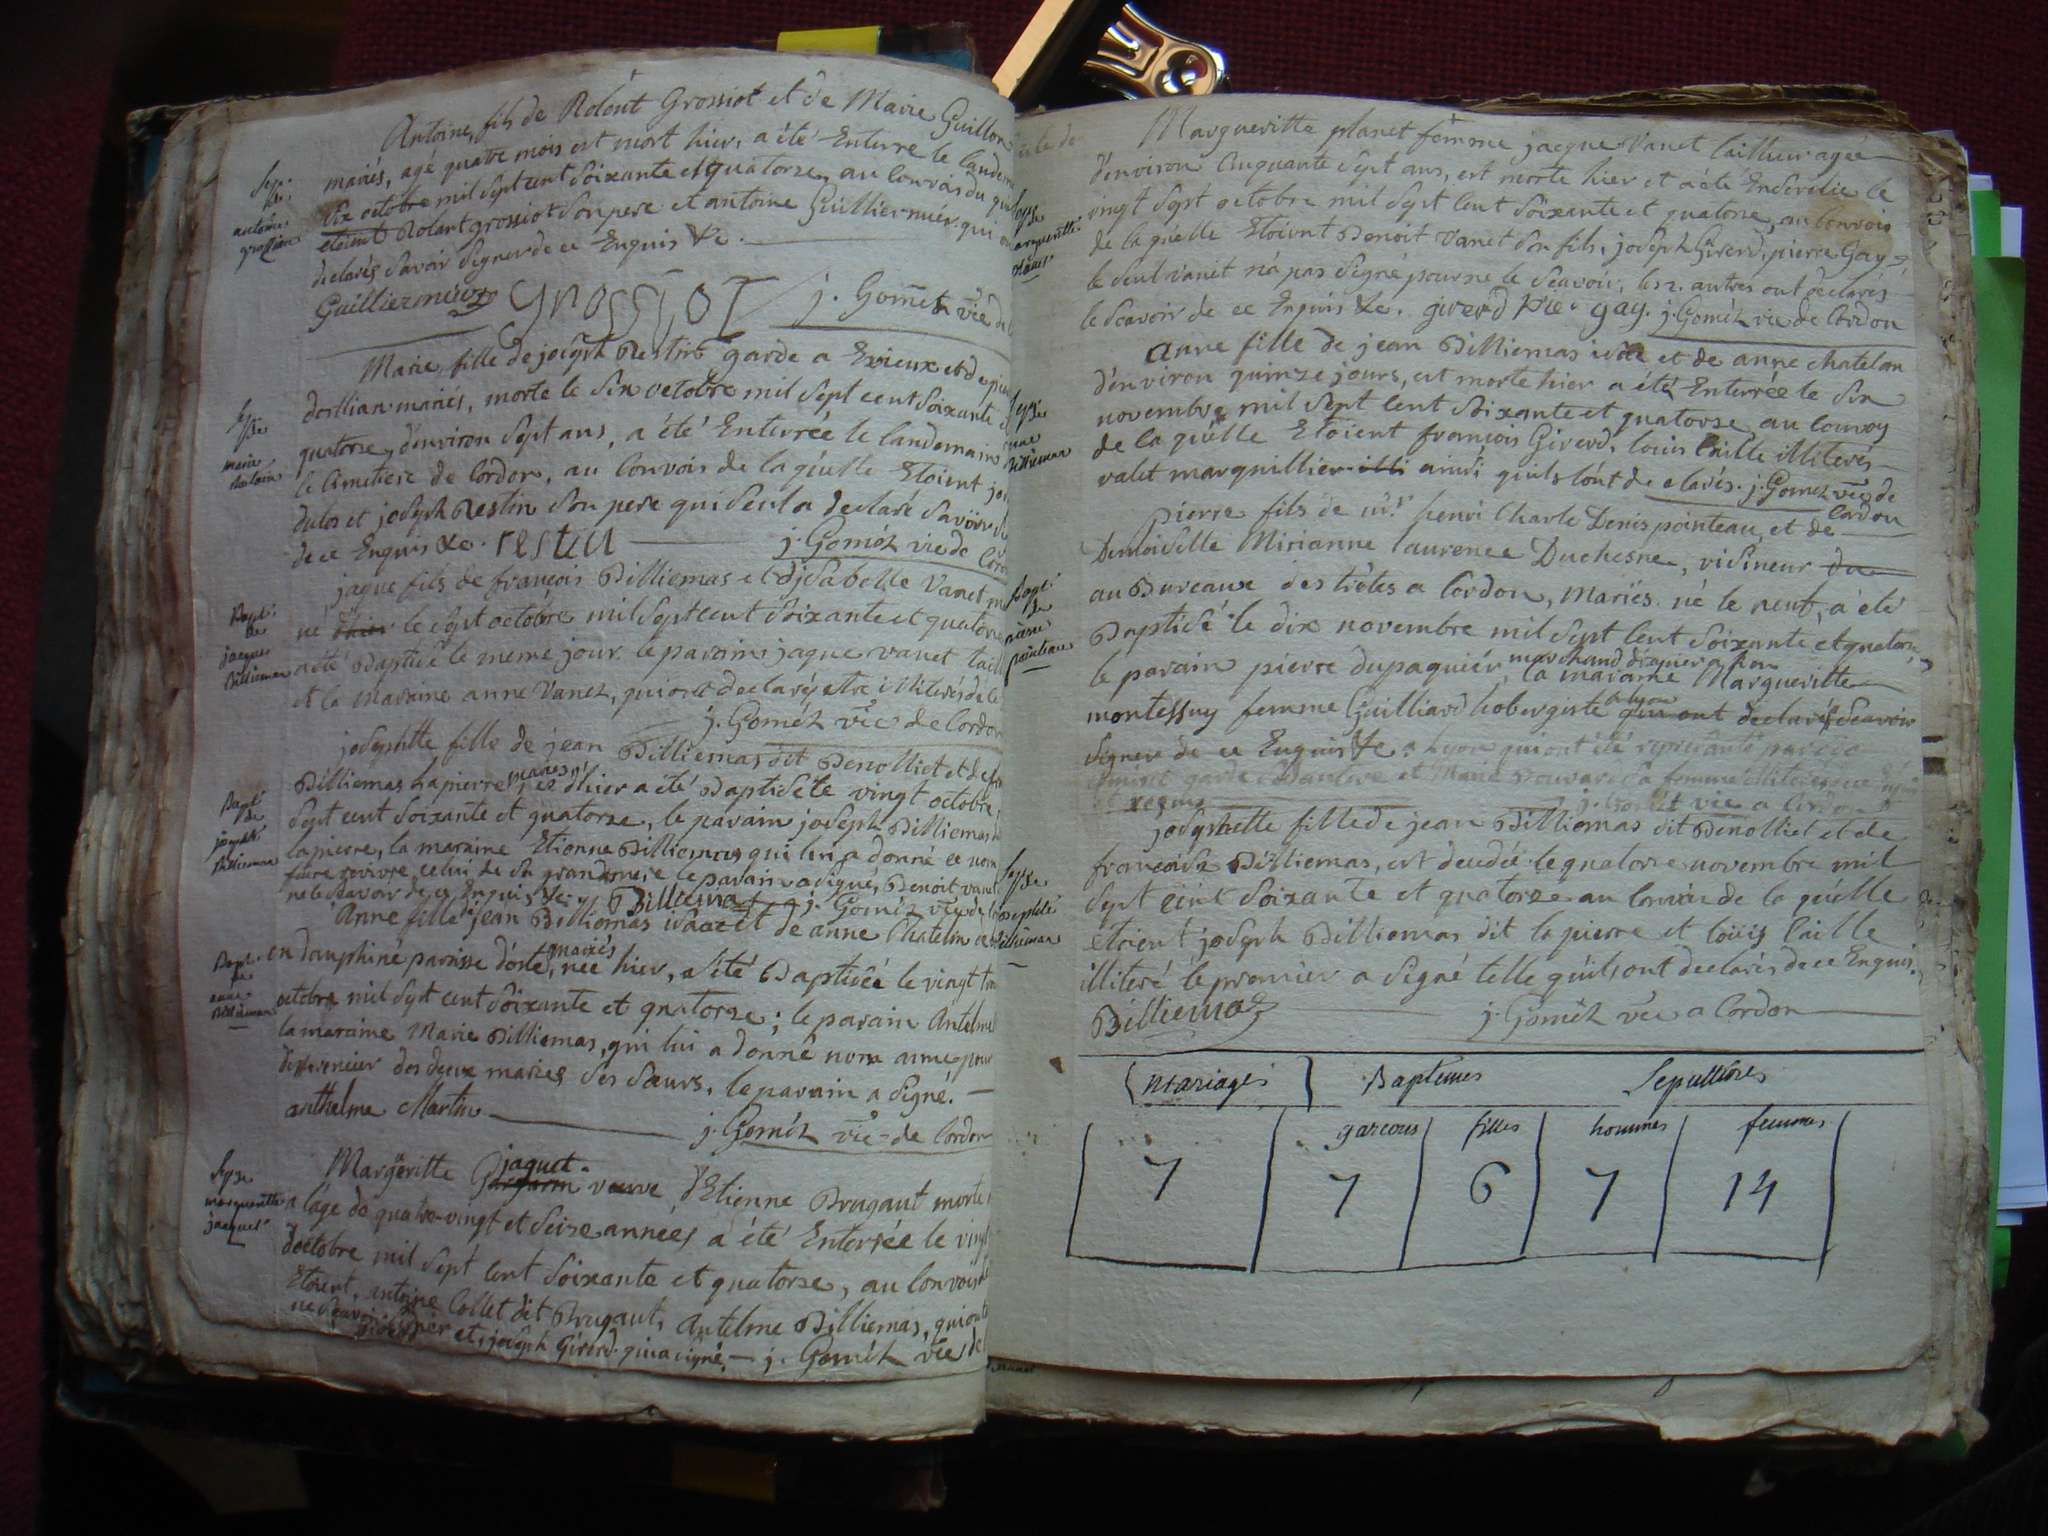 Antoine, fils de Rolent Grossiot et de Marie Guillon
mariés, agé quatre mois est mort hier, a été Enterre le landem
six octobre mil sept cent soixante et quatorze, au convois du quel
etoient Rolant grossiot son pere et antoine Guilliermier qui
declarés savoir signer de ce Enquis &c.
Guilliermier grossiot j. Gomet vic de
Sep:
antoine
grossiot
Marie, fille de joseph Restin garde a Evieux et de
dorllian mariés, morte le six octobre mil sept cent soixante et
quatorze, d'environ sept ans, a été Enterrée le landemain
le Cimetiere de Cordon, au Convois de la quelle Etoient
dulos et joseph Restin son pere qui seul a declaré savoir
de ce Enquis &c. restin j. Gomét vic de Cor
Sep
marie
jaque fils de françois Billiemas et d'jsabelle Vanet
né d'hier le sept octobre mil sept cent soixante et quatorze
a été Baptisé le meme jour. le parain jaque vanet
et la maraine anne Vanet, qui ont declaré etre illiterés de ce
j. Gomét vic de Cordon
Bapt:
de
jacque
Billiemas
josephtte fille de jean Billiemas dit Benolliet et de
Billiemas la pierre, mariés, née d'hier a été Baptisée le vingt octobre
sept cent soixante et quatorze, le parain joseph Billiemas
la pierre, la maraine Etienne Billiemas qui lui a donné ce nom
faire revivre celui de sa grandmere le parain a signé, Benoit vanet
ne le scavoir de ce Enquis &c. Billiema j. Gomét vic de
Bapt
de
josephte
Billiemas
Anne fille de jean Billiomas isaac et de anne Chatelan
en dauphiné paroisse d'oste, mariés, née hier, a été Baptisée le vingt
octobre mil sept cent soixante et quatorze; le parain Antelme
la maraine Marie Billiemas, qui lui a donné nom anne pour
differencier des deux maries ses sœurs, le parain a signé.
anthelme Martin j. Gomét vic de Cordon
Bapt.
de
anne
Billiemas
Margueritte jaquet veuve d'Etienne Brugaut morte
a l'age de quatre-vingt et seize années a été Enterrée le vingt
d'octobre mil sept cent soixante et quatorze, au convois
Etoient, antoine Collet dit Brugaut, Antelme Billiemas, qui ont
ne scavoir signer et joseph Girerd qui a signé. j. Gomét vic de
Sep de
margueritte
jacquet
Margueritte planet femme jacque Vanet tailleur agée
d'environ Cinquante sept ans, est morte hier et a été Ensevelie le
vingt sept octobre mil sept cent soixante et quatorze, au convois
de la quelle Etoient Benoit Vanet son fils, joseph Girerd, pierre Gay
le seul vanet n'a pas signé pour ne le scavoir, les 2. autres ont declarés
le scavoir de ce Enquis &c. girerd pre. gay. j. Gomét vic de Cordon
margueritte
planet
anne fille de jean Billiemas isaac et de anne chatelan
d'environ quinze jours, est morte hier a été Enterrée le six
novembre mil sept cent soixante et quatorze au convoy
de la quelle Etoient françois Girerd, louis Caille illiterés
valet marguillier illi ainsi quils l'ont de clarés. j. Gomet vic de
Cordon
Sep de
anne
Billiemas
pierre fils de mr. henri Charle Denis pointeau, et de
Demoiselle Mirianne laurence Duchesne, visineur du
au Bureaux des traites a Cordon, mariés. né le neuf, a été
Baptisé le dix novembre mil sept cent soixante, et quatorze
le parain pierre dupaquier, marchand la maraine Margueritte
montessuy femme Guilliard hobergiste a lyon qui ont declarés scavoir
signere de ce Enquis &c. Lyon qui ont été representé par
garde et Marie sa femme illiterés de ce
j. Gomet vic a Cordon
Bapt
de
pierre
pointeau
josephette fille de jean Billiemas dit Benolliet et de
francoise Billiemas, est decedée le quatorze novembre mil
sept cent soixante et quatorze au convois de la quelle
etoient joseph Billiemas dit la pierre et loüis Caille
illiteré le premier a signé telle quils ont declarés de ce Enquis.
Billiemaz j. Gomét vic a Cordon
Sep de
josephte
Billiemas
mariages Baptemes Sepultures
garcons filles hommes femmes
7 7 6 7 14